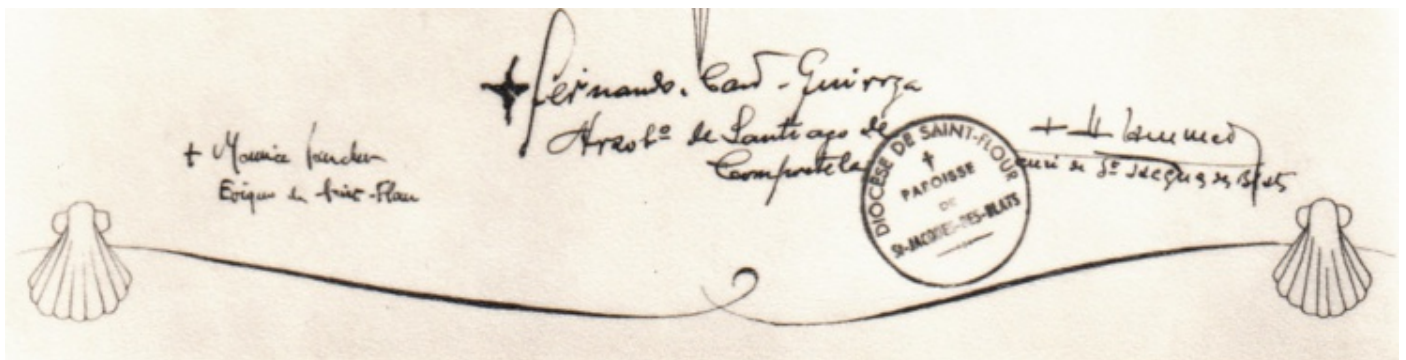 + Maurice
Evêque de Saint-Flour
+ Fernando, Card. Quiroga
Arzobº de Santiago de
Compostela
DIOCÈSE DE SAINT-FLOUR
†
PAROISSE
DE
St-JACQUES-DES-BLATS
+ H
curé de St Jacques des Blats